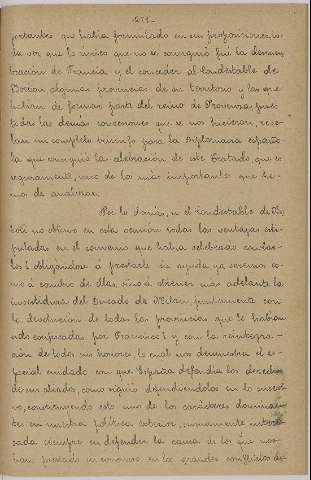 251.
portantes que habia formulado en un principio; viendo
de ver que lo único que no se consiguió fué la desmem
bracion de Francia y el conceder al Condestable de
Borbon algunas provincias de su territorio a las que
habian de formar parte del reino de Provenza, pues
todas las demás concesiones que se nos hicieron, reve
lan un completo triunfo para la Diplomacia españo
la que consiguió la celebracion de este Tratado, que es
seguramente, uno de los más importantes que he
mos de analizar.
Por lo demás, si el Condestable de Bor
bón no obtuvo en esta ocasion todas las ventajas esti
puladas en el convenio que habia celebrado con Car
los I obligandose á prestarle su ayuda, ya veremos co
mo á cambio de ellas, vino á obtener más adelante la
investidura del Ducado de Milan juntamente con
la devolucion de todas las provincias que le habian
sido confiscadas por Francisco I y con la reintegra
ción de todos sus honores, lo cual nos demuestra el es
pecial cuidado con que España defendia los derechos
de sus aliados, como siguió defendiéndolos en lo sucesi
vo, constituyendo esto uno de los carácteres dominan
tes en nuestra politica exterior, sumamente intere
sada siempre en defender la causa de los que nos
han prestado su concurso en los grandes conflictos de